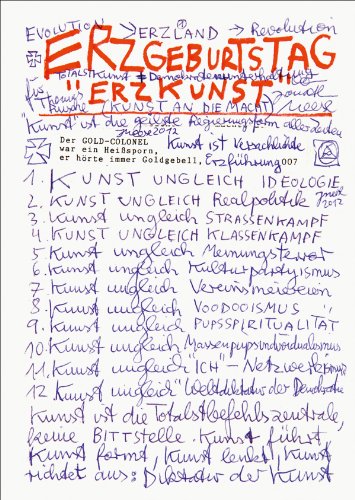 EVOLUTION > ERZLAND > Revolution
ERZGEBURTSTAG
TOTALSTKUNST
"ERZKUNST"
für
(KUNST AN DIE MACHT)
Meese
"Kunst" ist die geilste Regierungsform aller Zeiten
Meese 2012
Der GOLD-COLONEL
war ein Heißsporn,
er hörte immer Goldgebell,
Kunst ist Versachlichte
Erzführung 007
1. KUNST UNGLEICH IDEOLOGIE
2. KUNST UNGLEICH Realpolitik
Meese 2012
3. Kunst ungleich STRASSENKAMPF
4. KUNST UNGLEICH KLASSENKAMPF
5. Kunst ungleich Meinungsterror
6. Kunst ungleich Kulturpartyismus
7. Kunst ungleich Vereinsmeiereien
8. Kunst ungleich VOODOOISMUS
9. Kunst ungleich PUPSSPIRITUALITÄT
10. Kunst ungleich Massenpupsindividualismus
11. Kunst ungleich "ICH" – Netzwerk
12. Kunst ungleich "Weltdiktatur der Demokratie
Kunst ist die Totalstbefehlszentrale,
keine BITTSTELLE. Kunst führt,
Kunst formt, Kunst lenkt, Kunst
richtet aus: Diktatur der Kunst